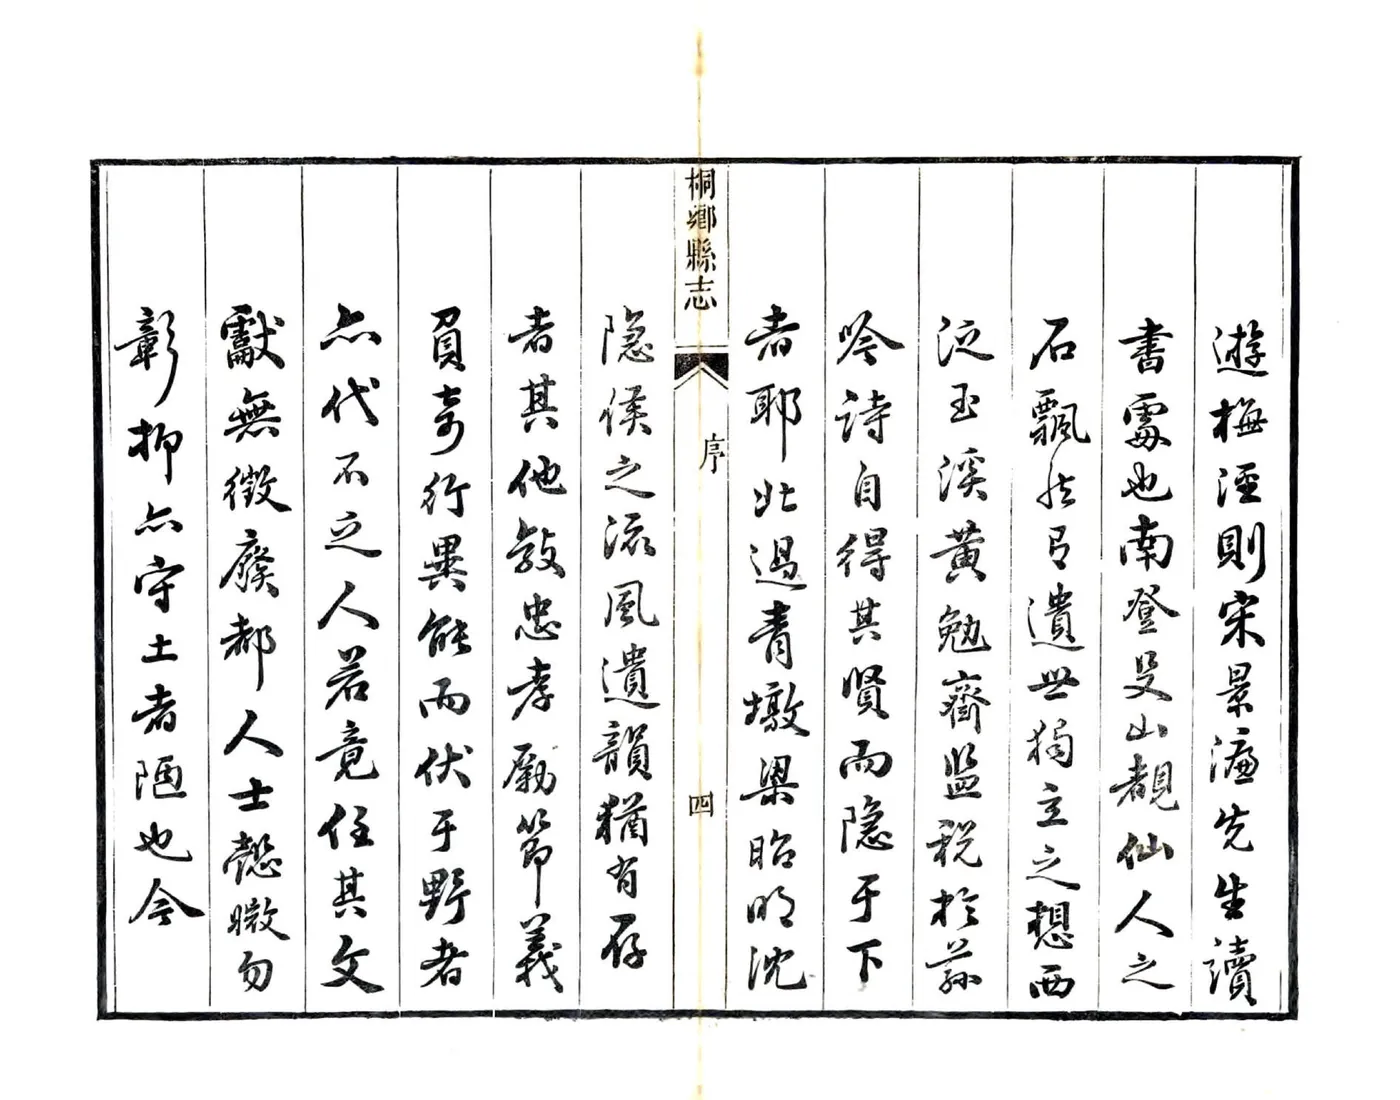 遊梅涇則宋景濂先生讀
書處也南登殳山覩仙人之
石飄然有遺世獨立之想西
泛玉溪黃勉齋監稅於茲
吟詩自得其賢而隱于下
者耶北過青墩梁昭明沈
桐鄉縣志
序
四
隱侯之流風遺韻猶有存
者其他敦忠孝勵節義
負奇行異能而伏于野者
亦代不乏人若竟任其文
獻無徵廢都人士懿媺勿
彰抑亦守土者陋也今